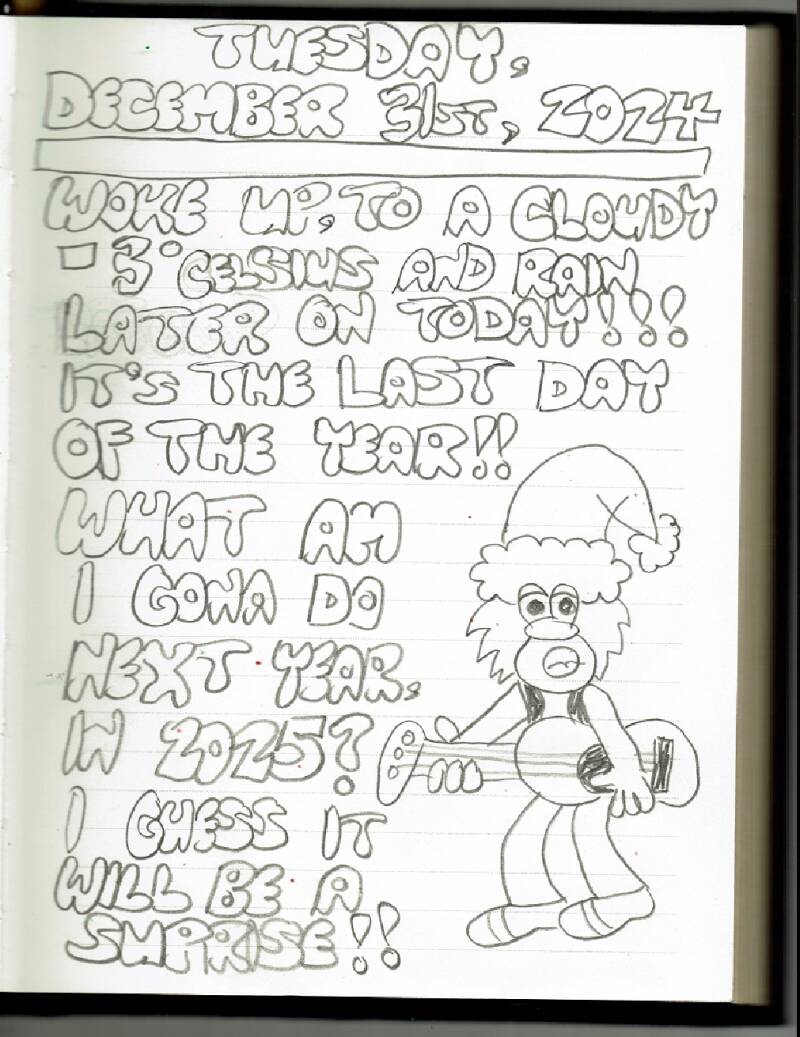 TUESDAY,
DECEMBER 31ST, 2024
WOKE UP, TO A CLOUDY
-3°CELSIUS AND RAIN
LATER ON TODAY!!!
IT'S THE LAST DAY
OF THE YEAR!!
WHAT AM
I GONA DO
NEXT YEAR,
IN 2025?
I GUESS IT
WILL BE A
SURPRISE!!